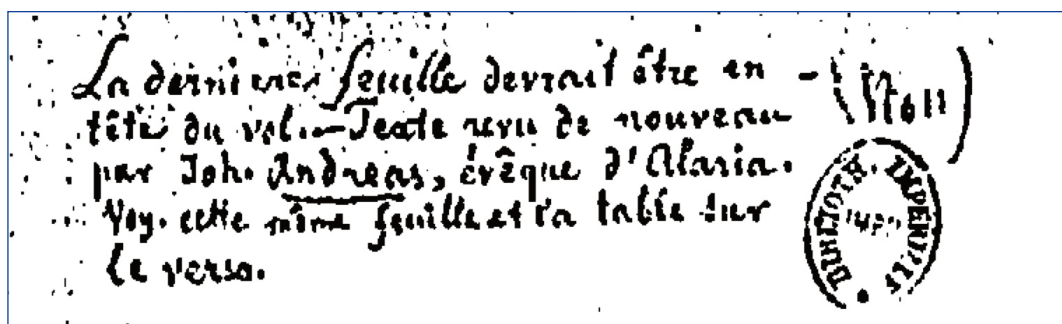 La derniere feuille devrait être en
tête du vol.—Texte revu de nouveau
par Joh. Andreas, évêque d'Alaria.
Voy. cette même feuille et la table sur
le verso.
BIBLIOTH. IMPÉRIALE